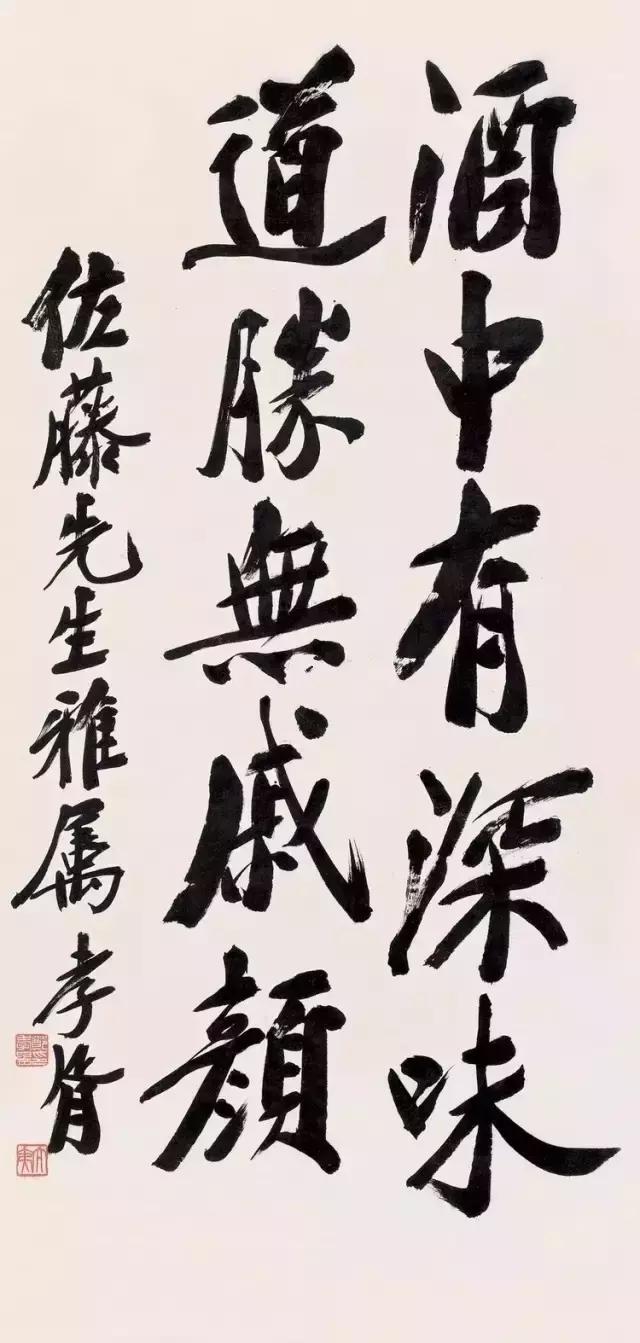 酒中有深味
道勝無戚顏
佐藤先生雅属 孝胥